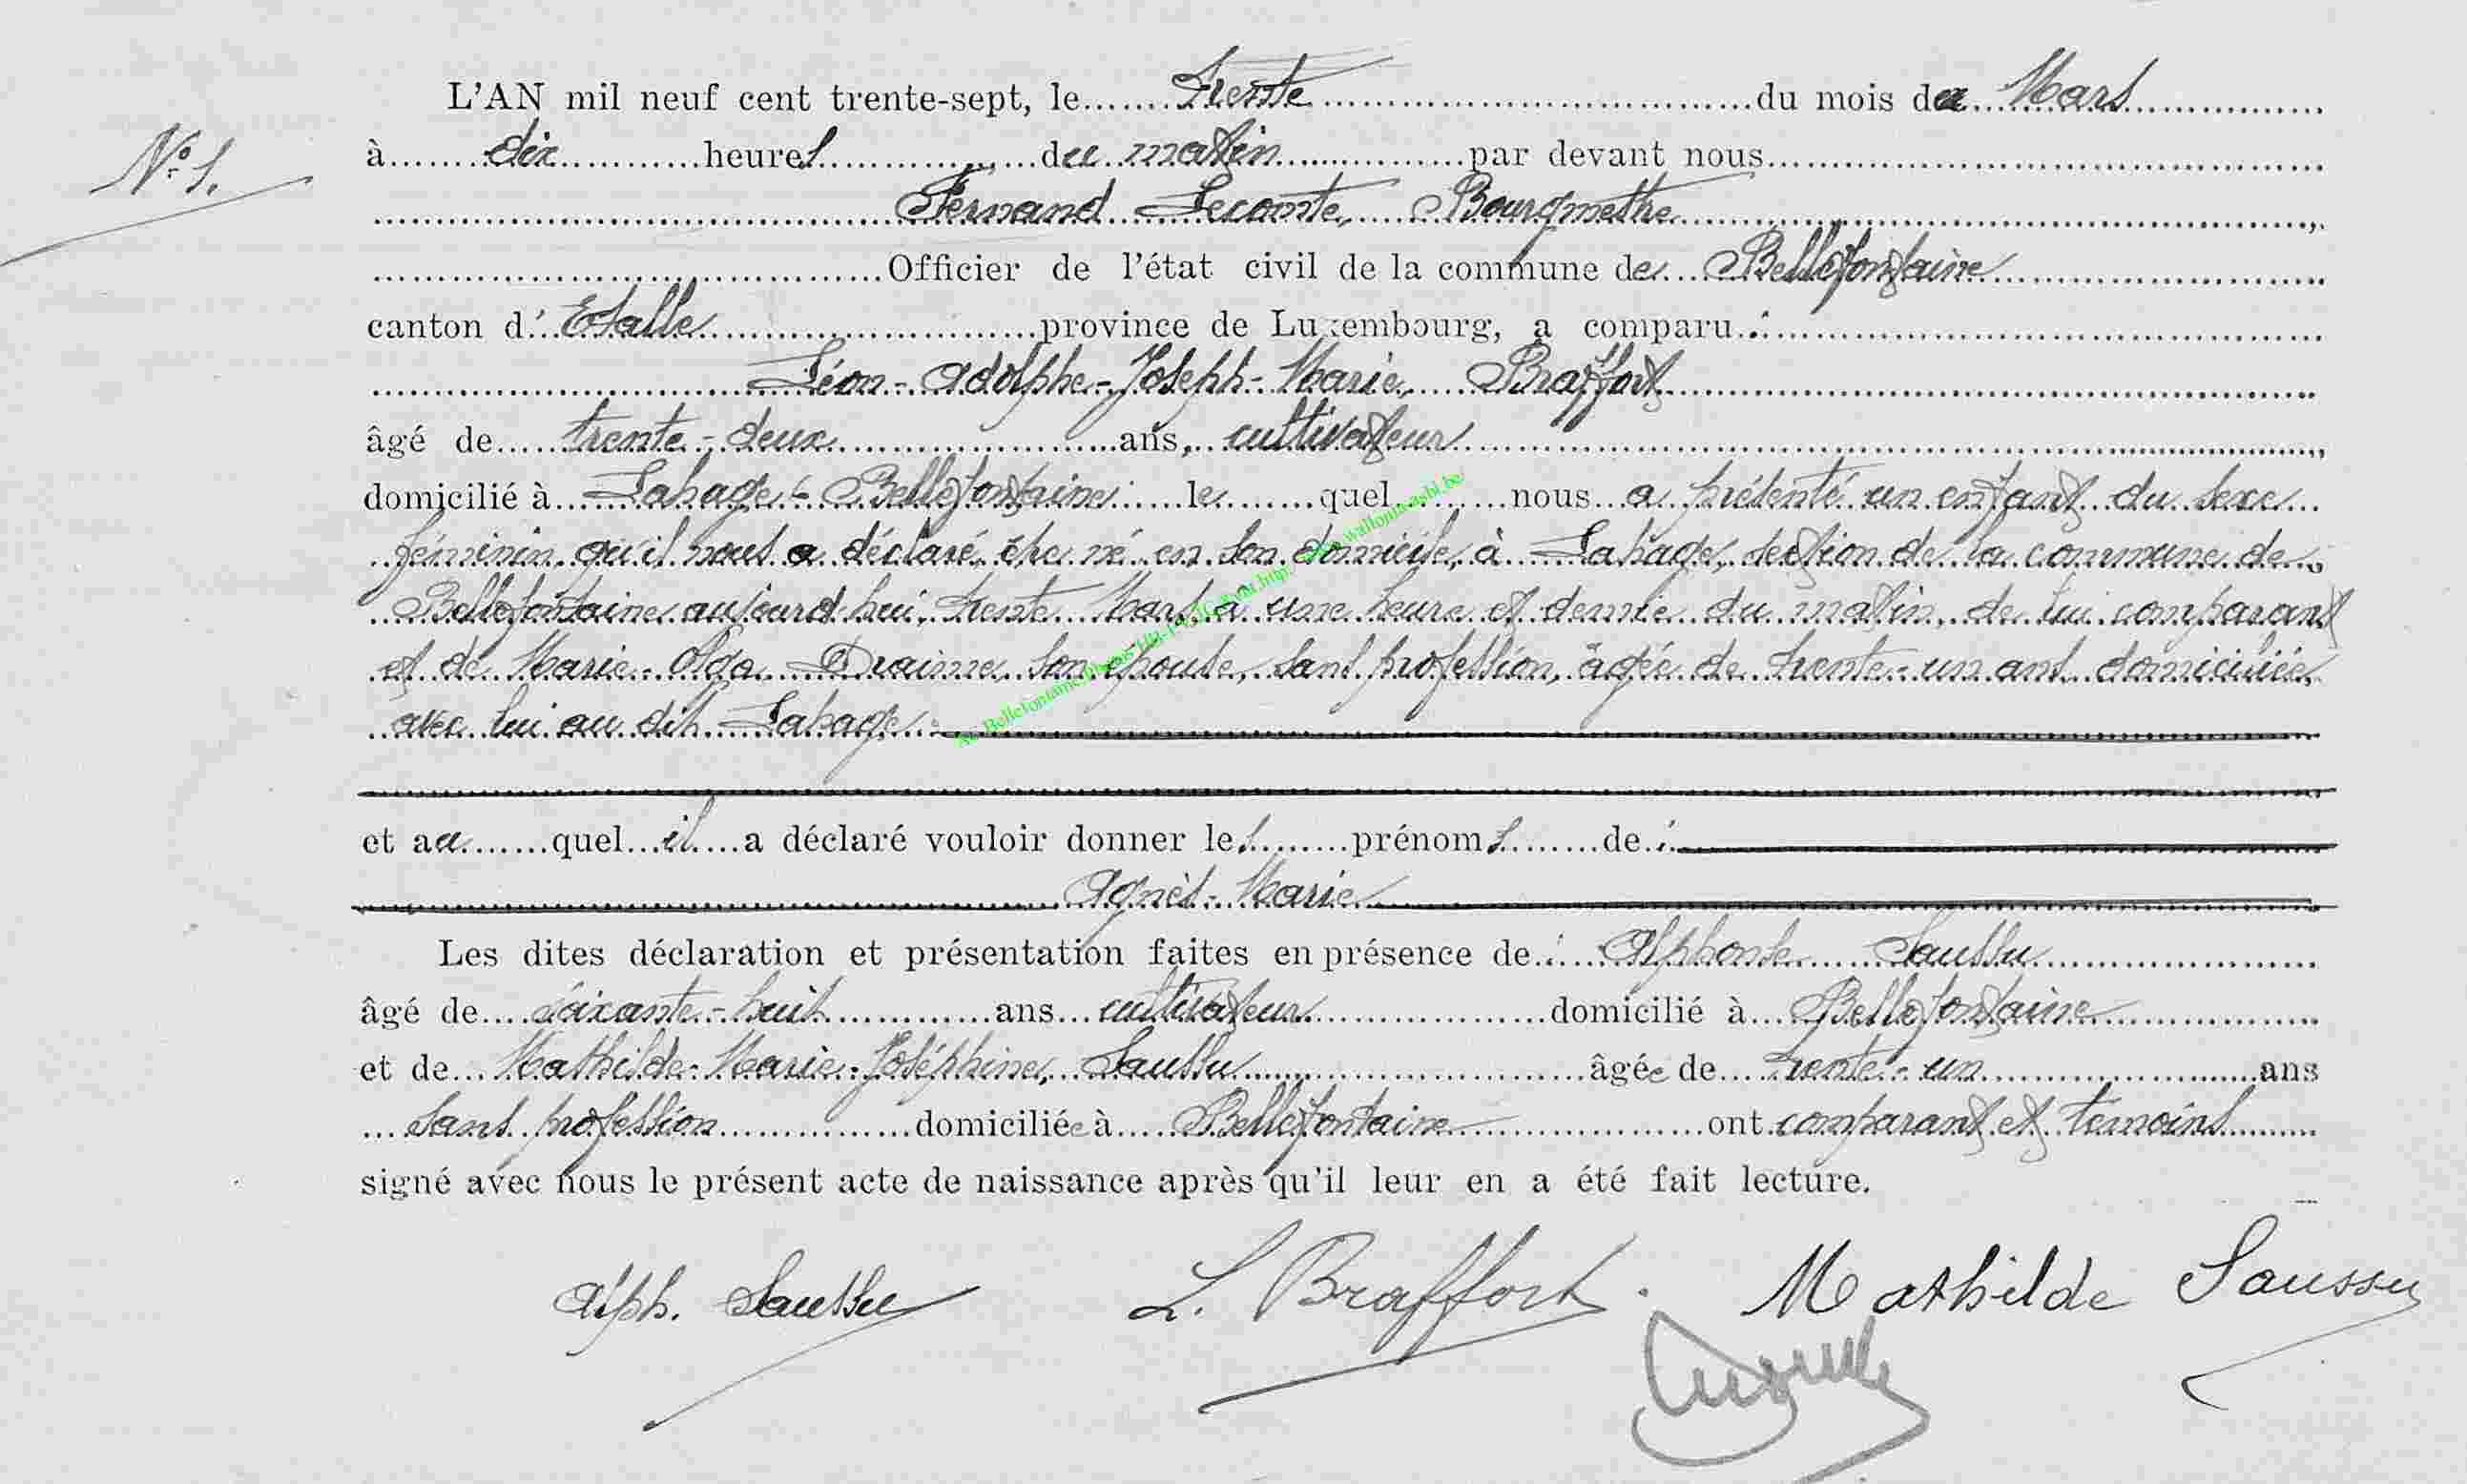 L'AN mil neuf cent trente-sept, le Trente du mois de Mars
N° 1. à dix heures du matin par devant nous
Fernand Lecomte, Bourgmestre
Officier de l'état civil de la commune de Bellefontaine
canton d' Etalle province de Luxembourg, a comparu :
Léon-Adolphe-Joseph-Marie, Braffort
âgé de trente-deux ans, cultivateur
domicilié à Lahage-Bellefontaine le quel nous a présenté un enfant du sexe
féminin qu'il nous a déclaré être né en son domicile, à Lahage, section de la commune de
Bellefontaine aujourd'hui, trente Mars, à une heure et demie du matin, de lui comparant
et de Marie-Olga Draime, son épouse, sans profession, âgée de trente-un ans domiciliée
avec lui au dit Lahage.
et au quel il a déclaré vouloir donner les prénoms de :
Agnès-Marie
Les dites déclaration et présentation faites en présence de : Alphonse Saussu
âgé de soixante-huit ans cultivateur domicilié à Bellefontaine
et de Mathilde-Marie-Joséphine, Saussu âgée de trente-un ans
sans profession domiciliée à Bellefontaine ont comparant et témoins
signé avec nous le présent acte de naissance après qu'il leur en a été fait lecture.
Alph. Saussu L. Braffort. Mathilde Saussu